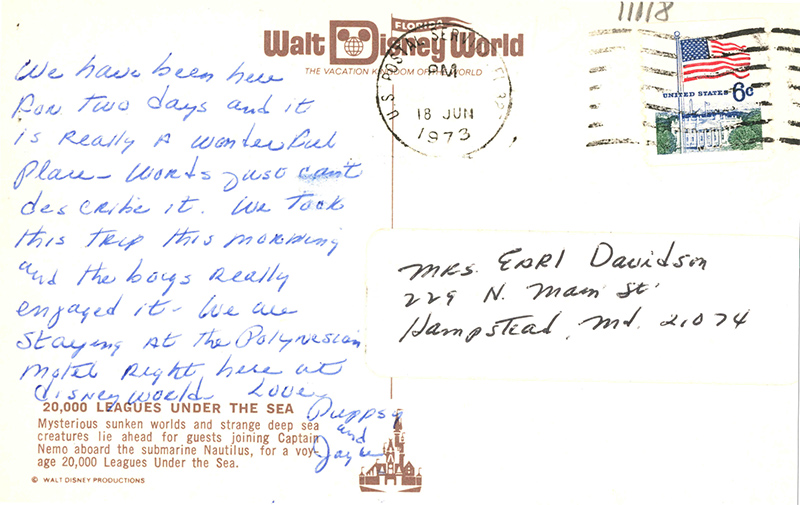 11118
FLORIDA
Walt Disney World
THE VACATION KINGDOM OF THE WORLD
U.S. POSTAL SERVICE
PM
18 JUN
1973
UNITED STATES 6c
We have been here
For Two days and it
is Really A wonderful
Place - Words just can't
describe it. We Took
this Trip this morning
and the boys Really
engaged it - We are
Staying At the Polynesian
Motel Right here at
Disney World Love,
Puppsy
and
Jayne
Mrs. Earl Davidson
229 N. Main St.
Hampstead, Md. 21074
20,000 LEAGUES UNDER THE SEA
Mysterious sunken worlds and strange deep sea
creatures lie ahead for guests joining Captain
Nemo aboard the submarine Nautilus, for a voy-
age 20,000 Leagues Under the Sea.
© WALT DISNEY PRODUCTIONS